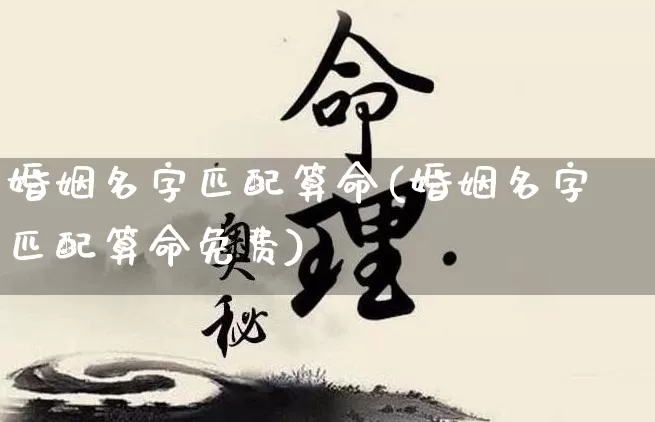 婚姻名字匹配算命(婚姻名字
匹配算命免费)
命理
奥秘